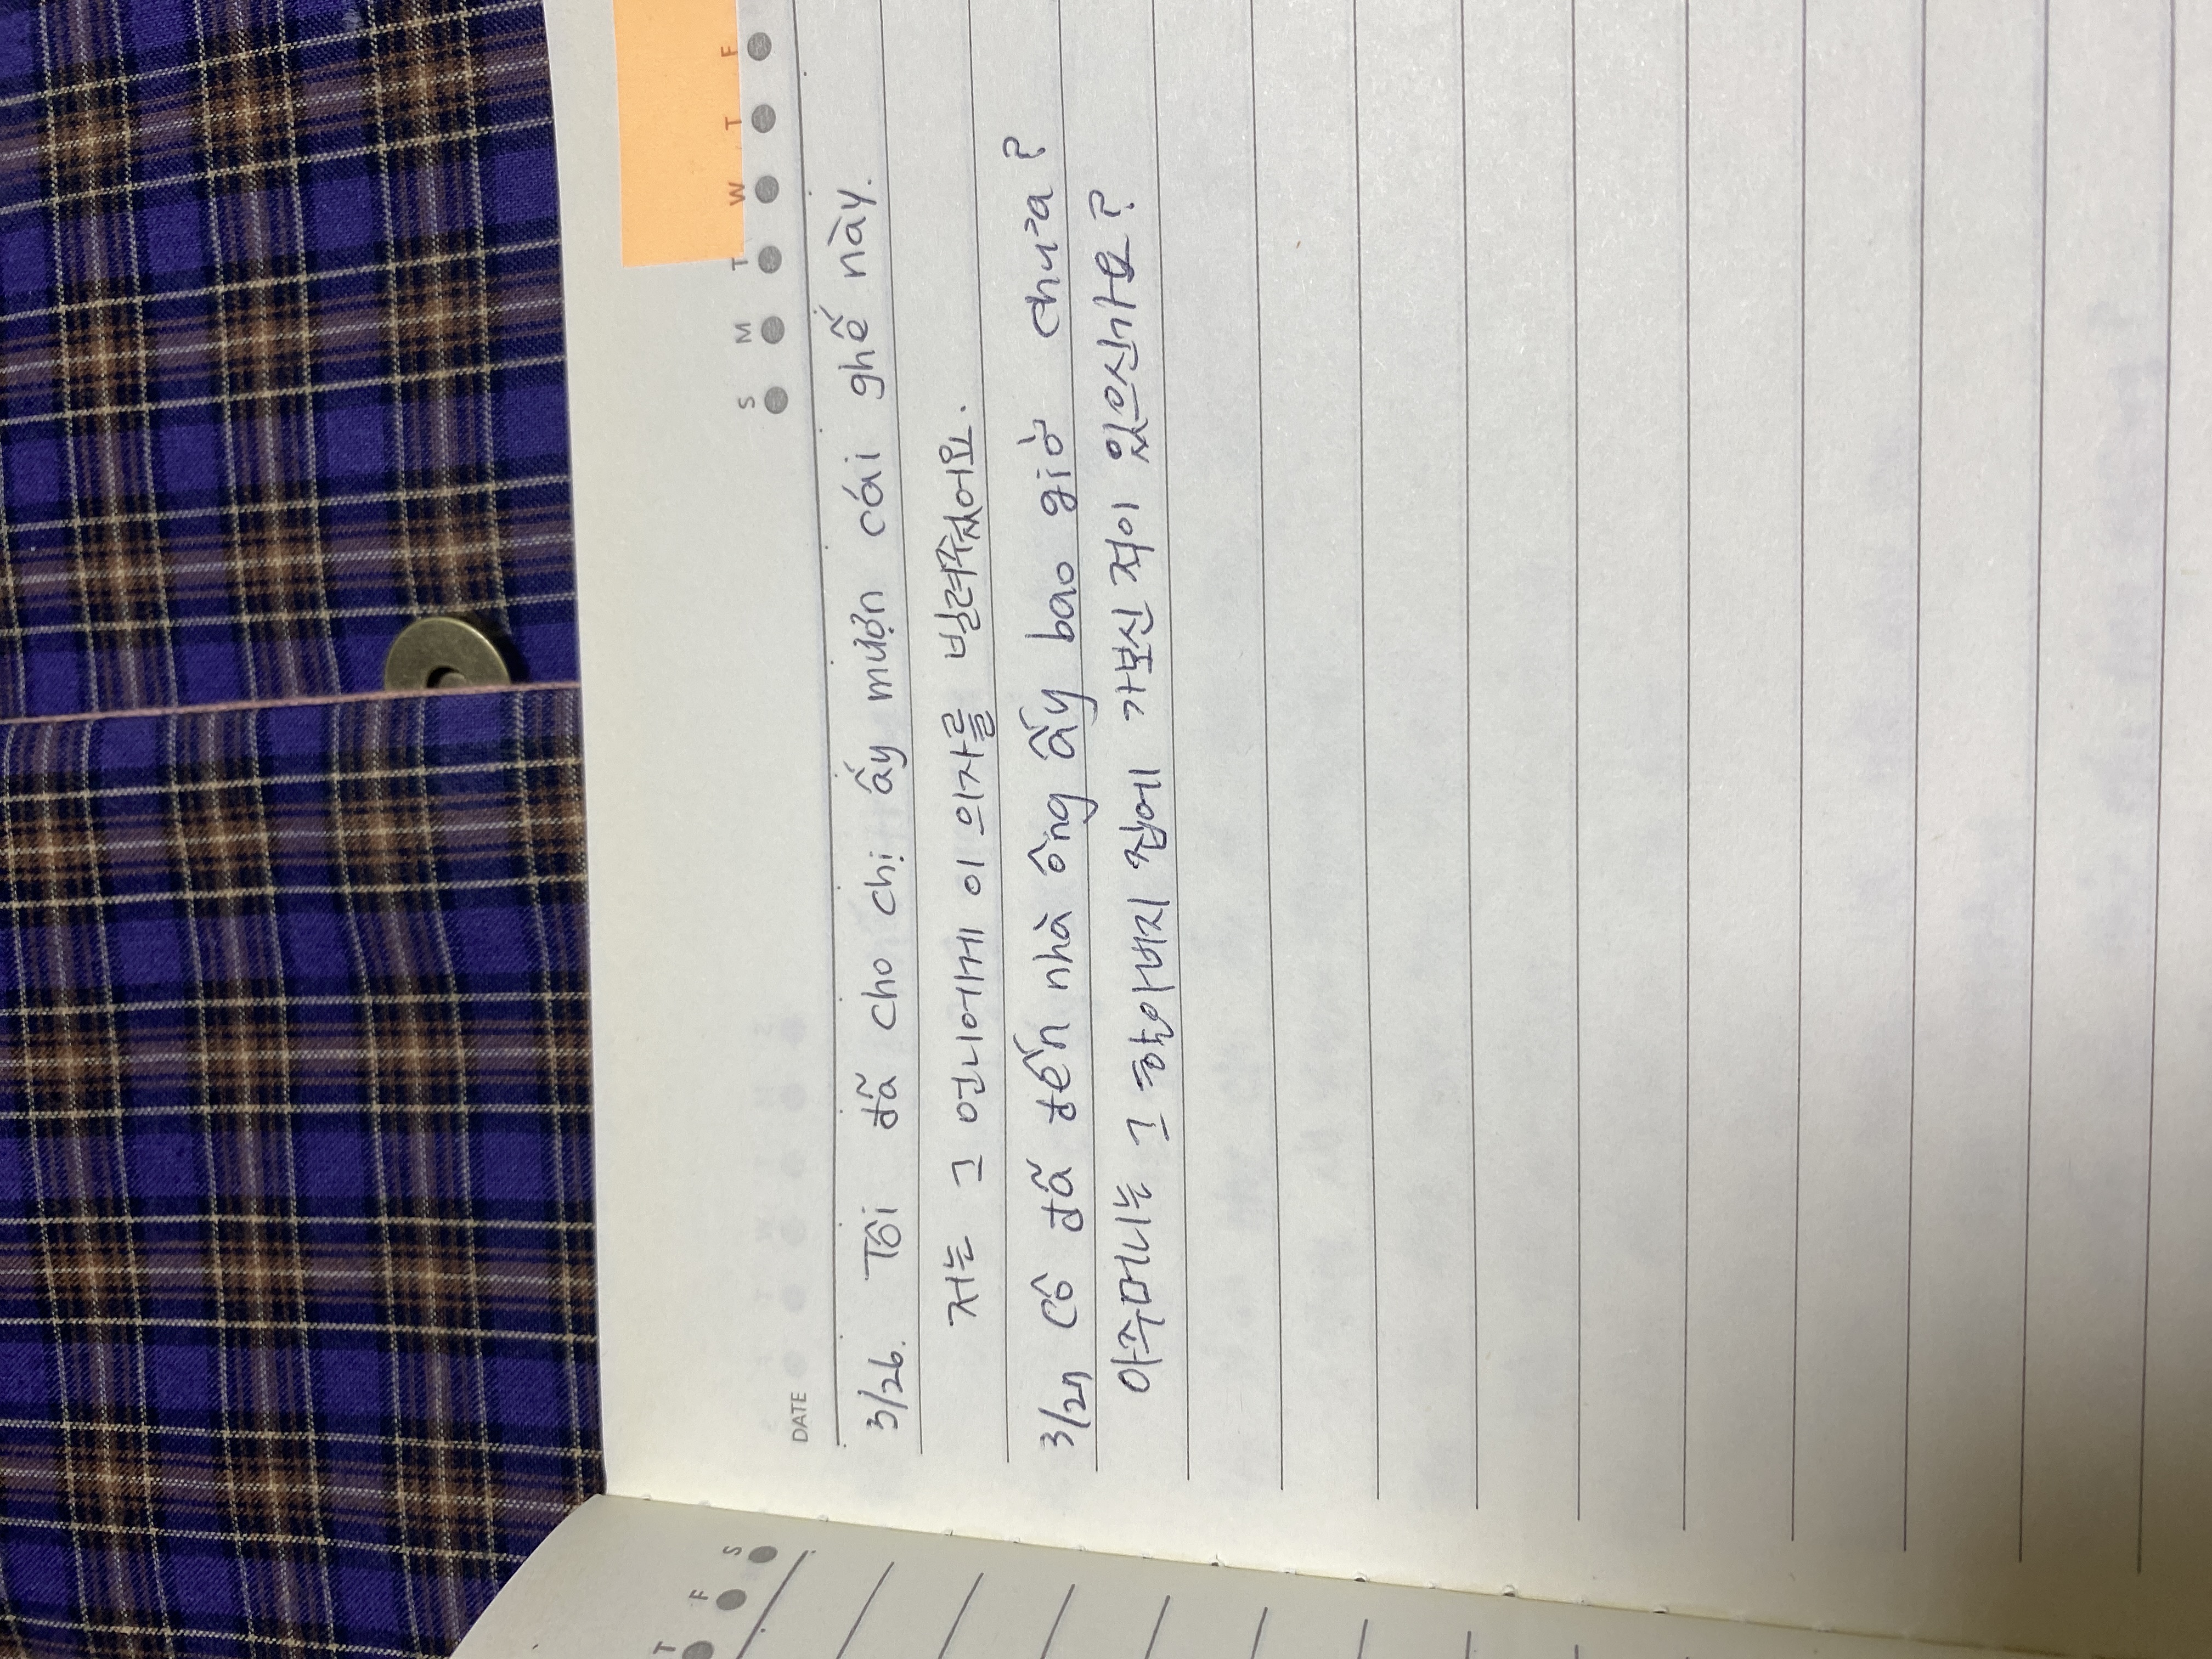 S M T W T F
DATE
3/26. Tôi đã cho chị ấy mượn cái ghế này.
저는 그 언니에게 이 의자를 빌려주었어요.
3/27 Cô đã đến nhà ông ấy bao giờ chưa?
아주머니는 그 할아버지 집에 가보신 적이 있으신가요?
T F S